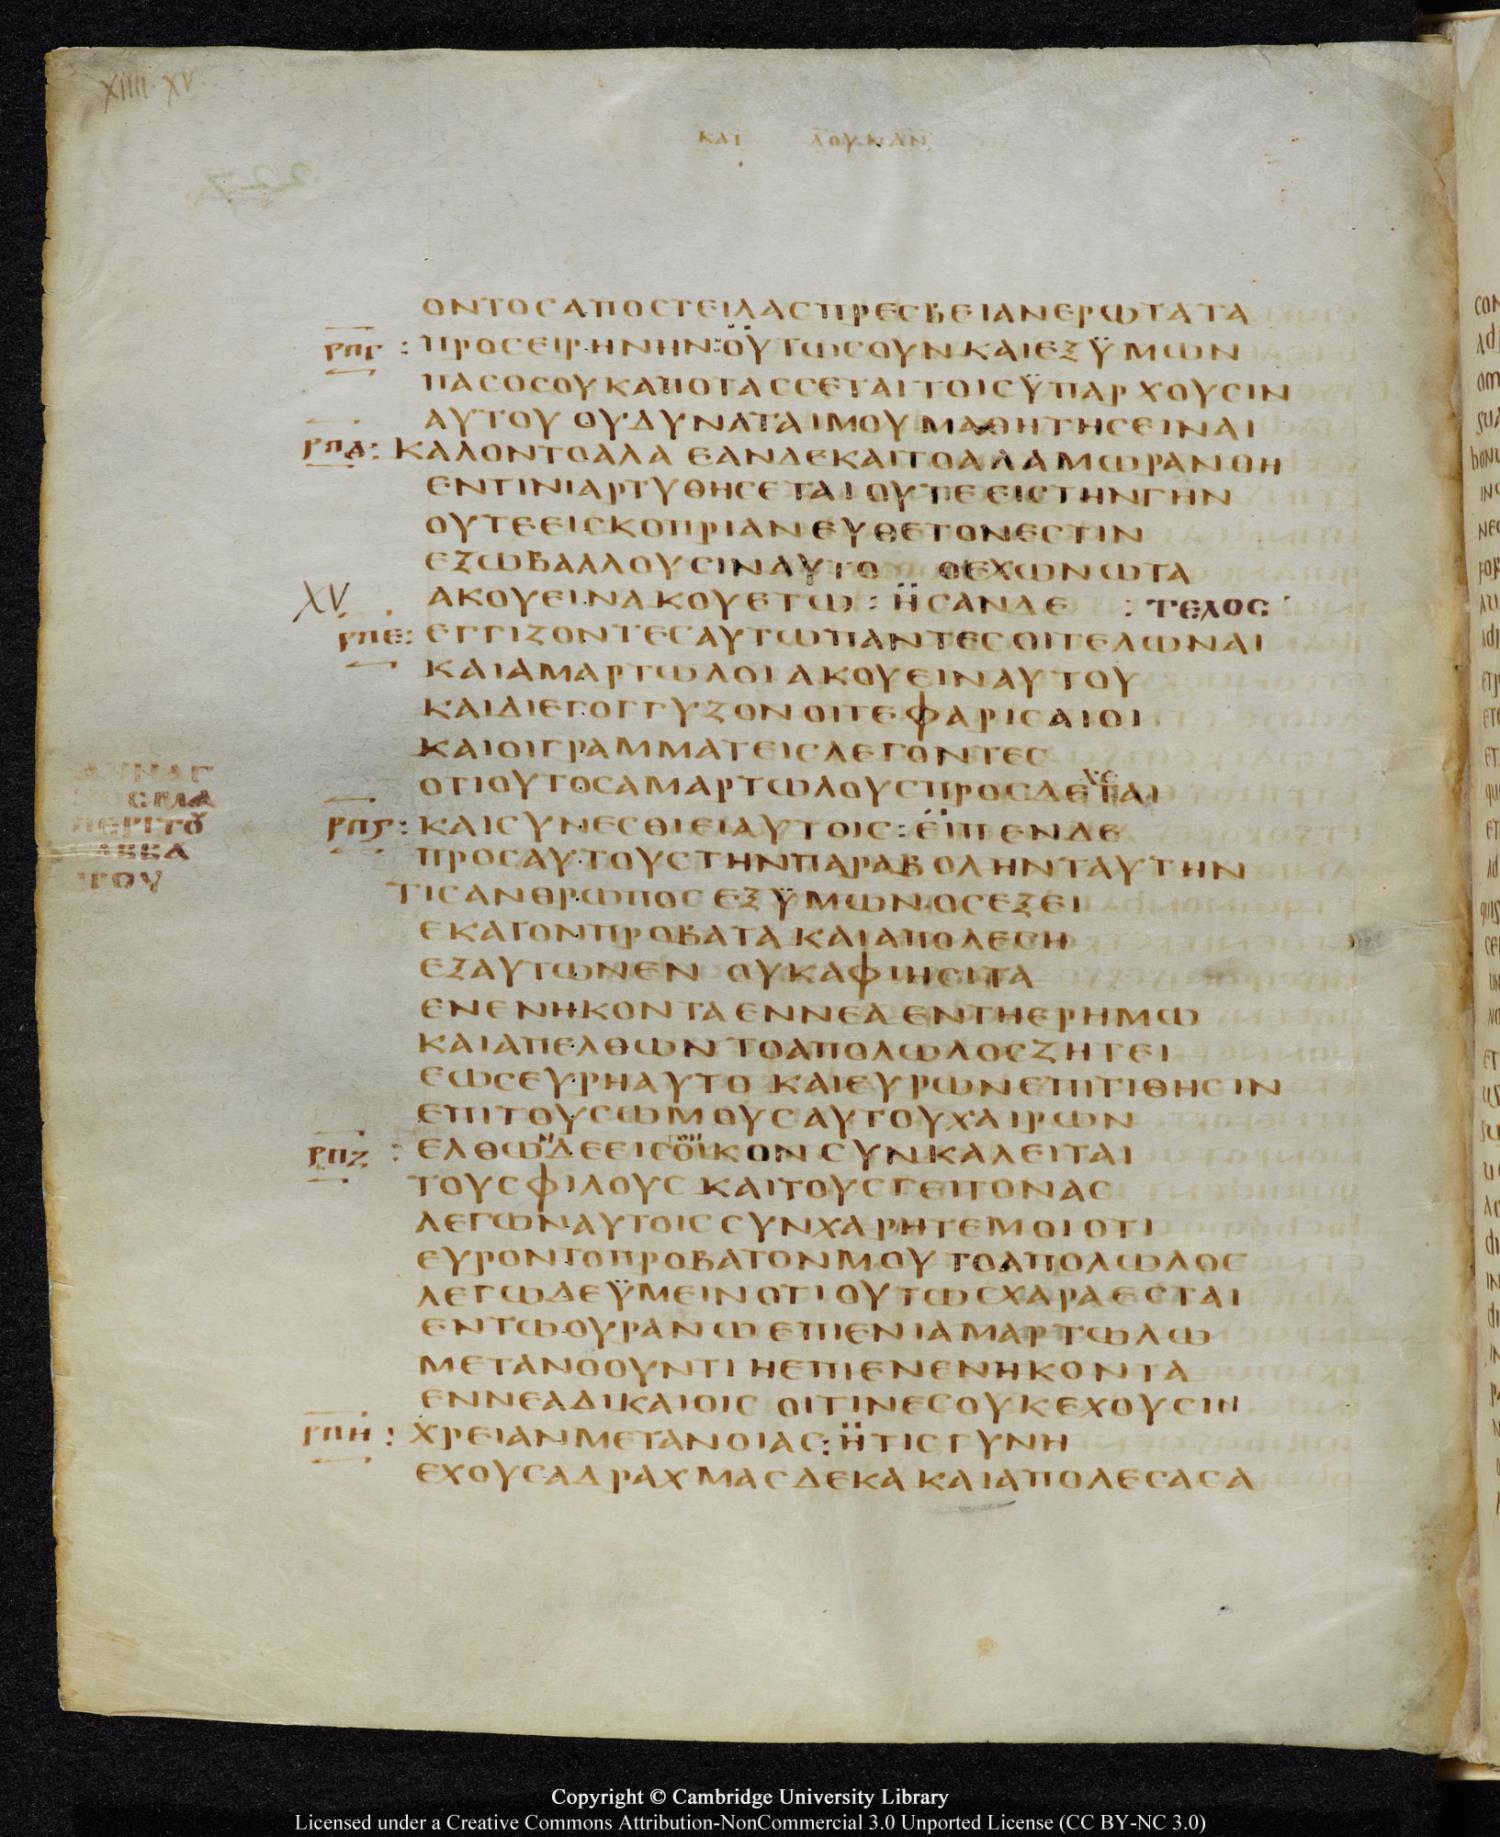 XIIII · XV
ΚΑΙ ΛΟΥΚΑΝ
ΟΝΤΟϹΑΠΟϹΤΕΙΛΑϹΠΡΕϹΒΕΙΑΝΕΡΩΤΑΤΑ
ΡΠΓ : ΠΡΟϹΕΙΡΗΝΗΝ:ΟΫΤΩϹΟΥΝΚΑΙΕΞΫΜΩΝ
ΠΑϹΟϹΟΥΚΑΠΟΤΑϹϹΕΤΑΙΤΟΙϹΫΠΑΡΧΟΥϹΙΝ
ΑΥΤΟΥ ΟΥΔΥΝΑΤΑΙΜΟΥΜΑΘΗΤΗϹΕΙΝΑΙ
ΡΠΔ: ΚΑΛΟΝΤΟΑΛΑ ΕΑΝΔΕΚΑΙΤΟΑΛΑΜΩΡΑΝΘΗ
ΕΝΤΙΝΙΑΡΤΥΘΗϹΕΤΑΙ ΟΥΤΕΕΙϹΤΗΝΓΗΝ
ΟΥΤΕΕΙϹΚΟΠΡΙΑΝΕΥΘΕΤΟΝΕϹΤΙΝ
ΕΞΩΒΑΛΛΟΥϹΙΝΑΥΤΟ ΟΕΧΩΝΩΤΑ
XV ΑΚΟΥΕΙΝΑΚΟΥΕΤΩ : ΗϹΑΝΔΕ : ΤΕΛΟϹ
ΡΠΕ: ΕΓΓΙΖΟΝΤΕϹΑΥΤΩΠΑΝΤΕϹΟΙΤΕΛΩΝΑΙ
ΚΑΙΑΜΑΡΤΩΛΟΙΑΚΟΥΕΙΝΑΥΤΟΥ
ΚΑΙΔΙΕΓΟΓΓΥΖΟΝΟΙΤΕΦΑΡΙϹΑΙΟΙ
ΚΑΙΟΙΓΡΑΜΜΑΤΕΙϹΛΕΓΟΝΤΕϹ
ΟΤΙΟΥΤΟϹΑΜΑΡΤΩΛΟΥϹΠΡΟϹΔΕΧΕΤΑΙ
ΡΠϚ: ΚΑΙϹΥΝΕϹΘΙΕΙΑΥΤΟΙϹ:ΕΙΠΕΝΔΕ
ΠΡΟϹΑΥΤΟΥϹΤΗΝΠΑΡΑΒΟΛΗΝΤΑΥΤΗΝ
ΤΙϹΑΝΘΡΩΠΟϹΕΞΫΜΩΝΟϹΕΞΕΙ
ΕΚΑΤΟΝΠΡΟΒΑΤΑΚΑΙΑΠΟΛΕϹΗ
ΕΞΑΥΤΩΝΕΝ ΟΥΚΑΦΙΗϹΙΤΑ
ΕΝΕΝΗΚΟΝΤΑΕΝΝΕΑΕΝΤΗΕΡΗΜΩ
ΚΑΙΑΠΕΛΘΩΝΤΟΑΠΟΛΩΛΟϹΖΗΤΕΙ
ΕΩϹΕΥΡΗΑΥΤΟ ΚΑΙΕΥΡΩΝΕΠΙΤΙΘΗϹΙΝ
ΕΠΙΤΟΥϹΩΜΟΥϹΑΥΤΟΥΧΑΙΡΩΝ
ΡΠΖ : ΕΛΘΩΝΔΕΕΙϹΤΟΝΟΙΚΟΝϹΥΝΚΑΛΕΙΤΑΙ
ΤΟΥϹΦΙΛΟΥϹ ΚΑΙΤΟΥϹΓΕΙΤΟΝΑϹ
ΛΕΓΩΝΑΥΤΟΙϹϹΥΝΧΑΡΗΤΕΜΟΙΟΤΙ
ΕΥΡΟΝΤΟΠΡΟΒΑΤΟΝΜΟΥΤΟΑΠΟΛΩΛΟϹ
ΛΕΓΩΔΕΫΜΕΙΝΟΤΙΟΥΤΩϹΧΑΡΑΕϹΤΑΙ
ΕΝΤΩΟΥΡΑΝΩΕΠΙΕΝΙΑΜΑΡΤΩΛΩ
ΜΕΤΑΝΟΟΥΝΤΙΗΕΠΙΕΝΕΝΗΚΟΝΤΑ
ΕΝΝΕΑΔΙΚΑΙΟΙϹ ΟΙΤΙΝΕϹΟΥΚΕΧΟΥϹΙΝ
ΡΠΗ : ΧΡΕΙΑΝΜΕΤΑΝΟΙΑϹ:ΗΤΙϹΓΥΝΗ
ΕΧΟΥϹΑΔΡΑΧΜΑϹΔΕΚΑΚΑΙΑΠΟΛΕϹΑϹΑ
Copyright © Cambridge University Library
Licensed under a Creative Commons Attribution-NonCommercial 3.0 Unported License (CC BY-NC 3.0)